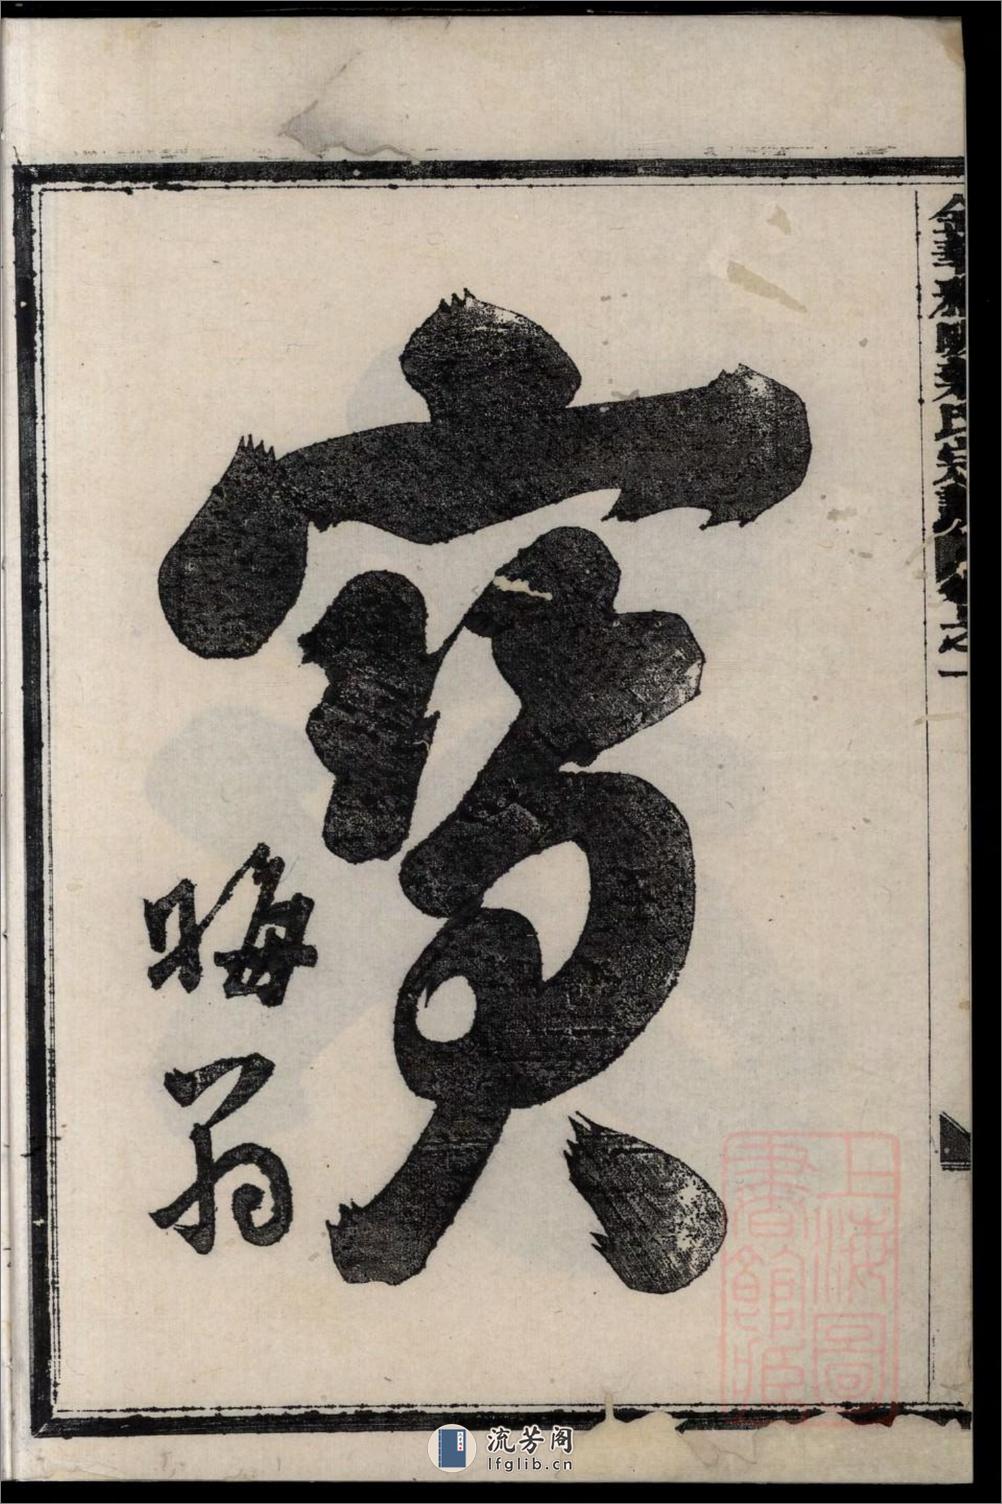 金華
氏宗譜
卷之一
寶
晦翁
上海圖
書館藏
流芳阁
lfglib.cn